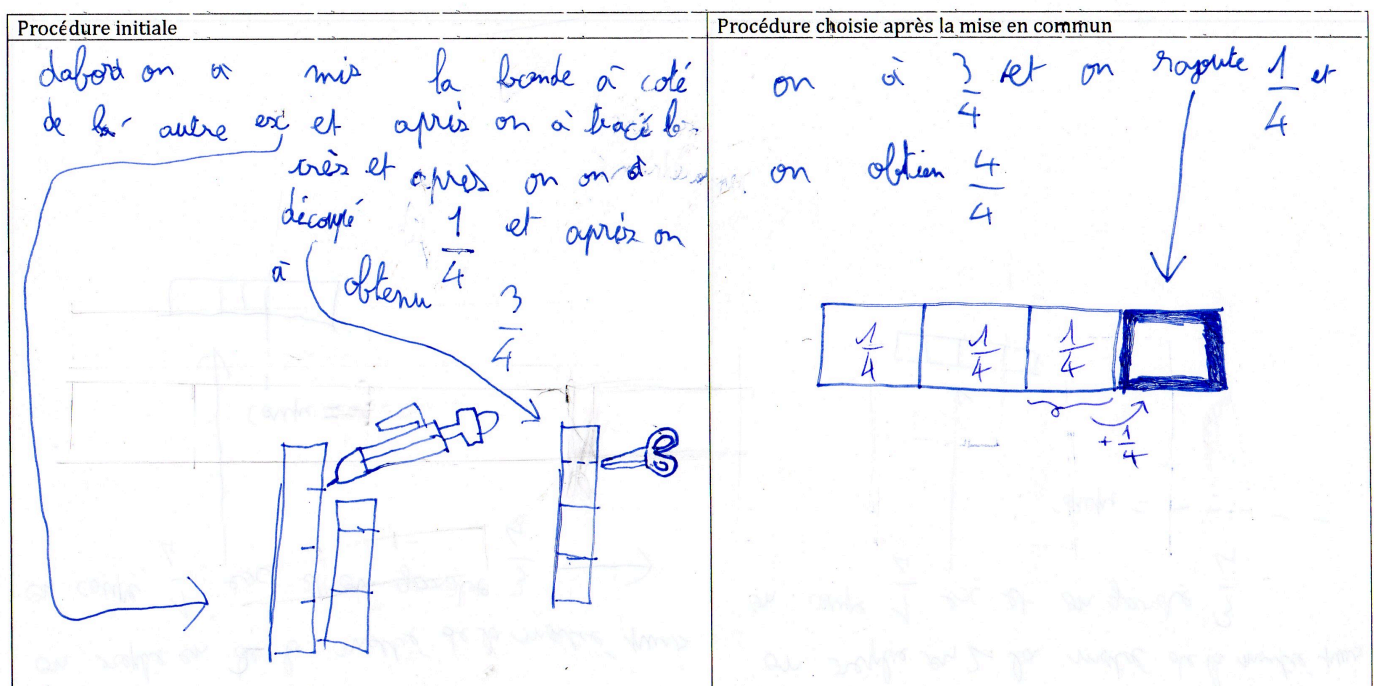 Procédure initiale
dabord on a mis la bande à coté
de la autre ex et après on à tracé
et après on on à
découpé 1/4 et après on
à obtenu 3/4
Procédure choisie après la mise en commun
on à 3/4 et on rajoute 1/4 et
on obtien 4/4
1/4 1/4 1/4
+ 1/4